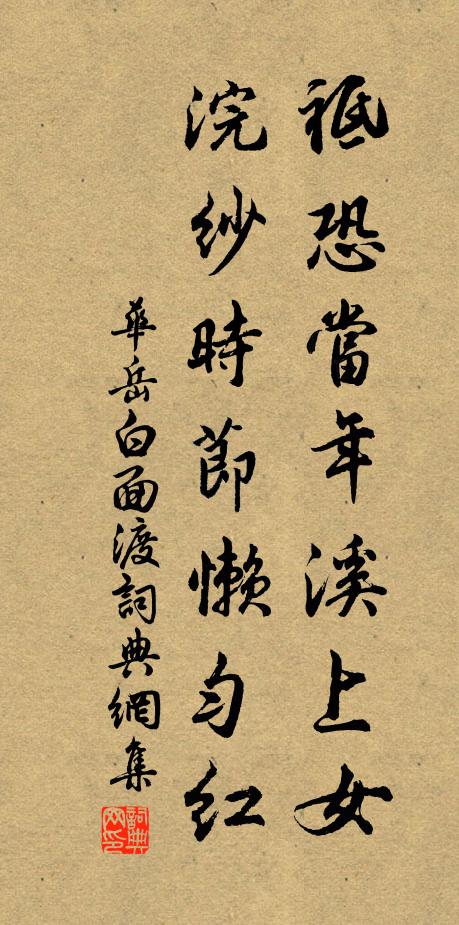 祗恐當年溪上女
浣紗時節懶勻紅
華岳白面渡詞典網集
詞典網印